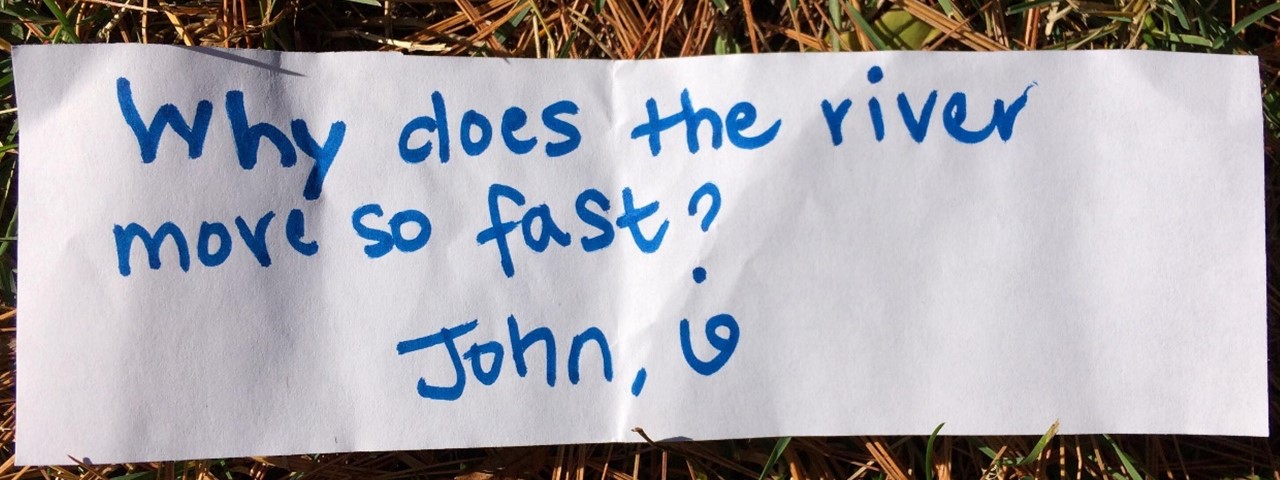 Why does the river
more so fast?
John, 19